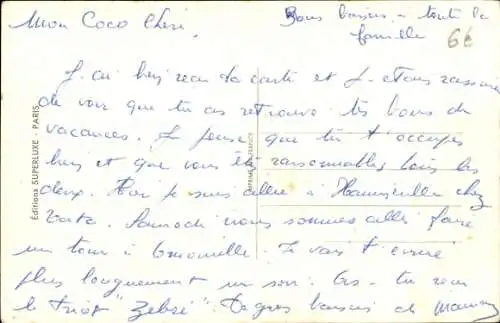 Mon Coco Chéri,
Bons baisers à toute la
famille
6E
J'ai bien reçu ta carte et j'étais rassurée
de voir que tu as retrouvé tes lieux de
vacances. Je pense que tu t'occupes
bien et que vous êtes raisonnables tous les
deux. Hier je suis allée à chez
Samedi nous sommes allés faire
un tour à Je vais t'écrire
plus longuement un soir. As-tu reçu
le tricot "Zébré". De gros baisers de maman
Éditions SUPERLUXE - PARIS